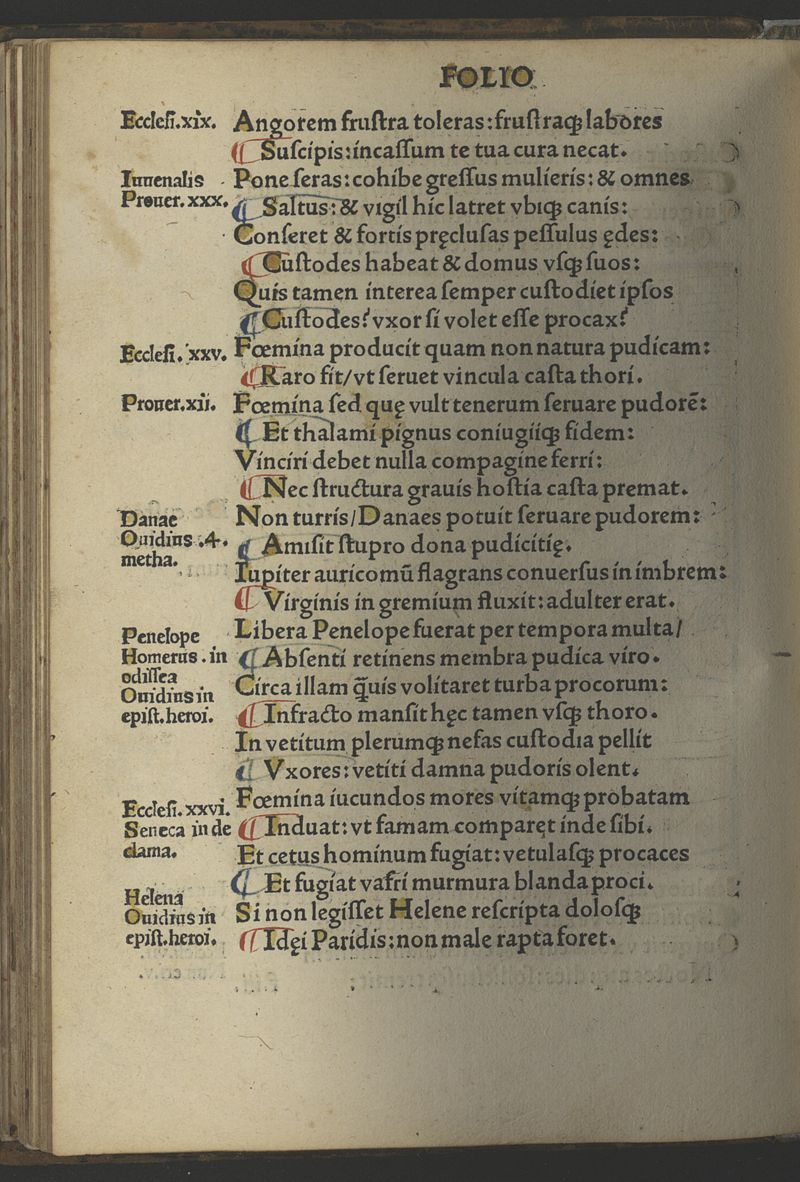 FOLIO
Ecclesi.xix. Angorem frustra toleras:frustraqꝫ labores
⸿ Suscipis:incassum te tua cura necat.
Iuuenalis Pone seras:cohibe gressus mulieris:& omnes
Prouer.xxx. ⸿ Saltus:& vigil hic latret vbiqꝫ canis:
Conseret & fortis pręclusas pessulus ędes:
⸿ Custodes habeat & domus vsqꝫ suos:
Quis tamen interea semper custodiet ipsos
⸿ Custodes? vxor si volet esse procax?
Ecclesi.xxv. Fœmina producit quam non natura pudicam:
⸿ Raro fit/vt seruet vincula casta thori.
Prouer.xii. Fœmina sed quę vult tenerum seruare pudorē:
⸿ Et thalami pignus coniugiiqꝫ fidem:
Vinciri debet nulla compagine ferri:
⸿ Nec structura grauis hostia casta premat.
Danae Non turris/Danaes potuit seruare pudorem:
Ouidius .4. ⸿ Amisit stupro dona pudicitię.
metha. Iupiter auricomū flagrans conuersus in imbrem:
⸿ Virginis in gremium fluxit:adulter erat.
Penelope Libera Penelope fuerat per tempora multa/
Homerus.in ⸿ Absenti retinens membra pudica viro.
odissea
Ouidius in Circa illam q̄uis volitaret turba procorum:
epist.heroi. ⸿ Infracto mansit hęc tamen vsqꝫ thoro.
In vetitum plerumqꝫ nefas custodia pellit
⸿ Vxores:vetiti damna pudoris olent.
Ecclesi.xxvi. Fœmina iucundos mores vitamqꝫ probatam
Seneca in de ⸿ Induat:vt famam comparęt inde sibi.
clama. Et cetus hominum fugiat:vetulasqꝫ procaces
⸿ Et fugiat vafri murmura blanda proci.
Helena
Ouidius in Si non legisset Helene rescripta dolosqꝫ
epist.heroi. ⸿ Idęi Paridis:non male rapta foret.